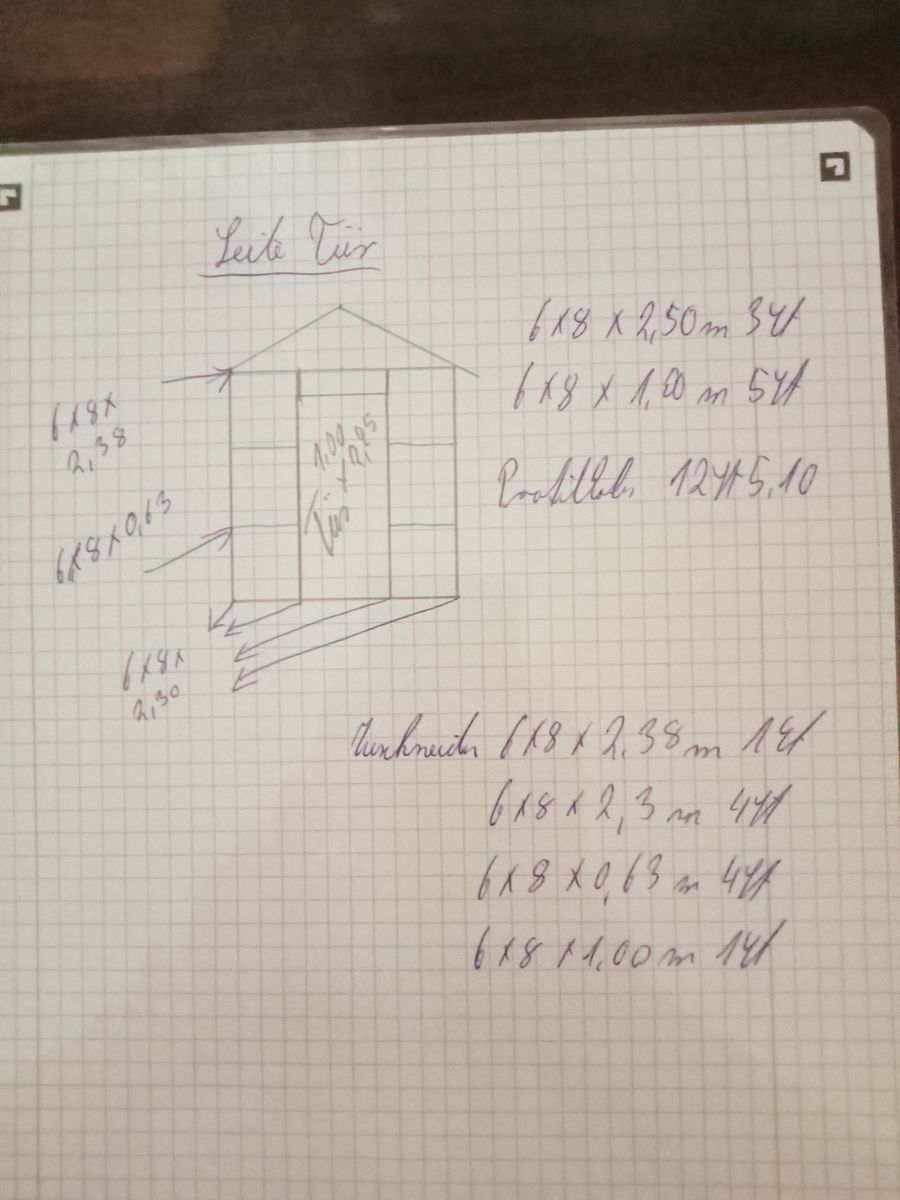 Seite Tür
6x8 x 2,50 m 3 St
6x8 x
2,38
6 x 8 x m 5 St
1,00
x 2,25
Tür
12 St 5,10
6x8x0,63
6x8x
2,30
Zuschneiden 6x8 x 2,38 m 1 St
6x8 x 2,3 m 4 St
6x8 x 0,63 m 4 St
6x8 x 1,00 m 1 St